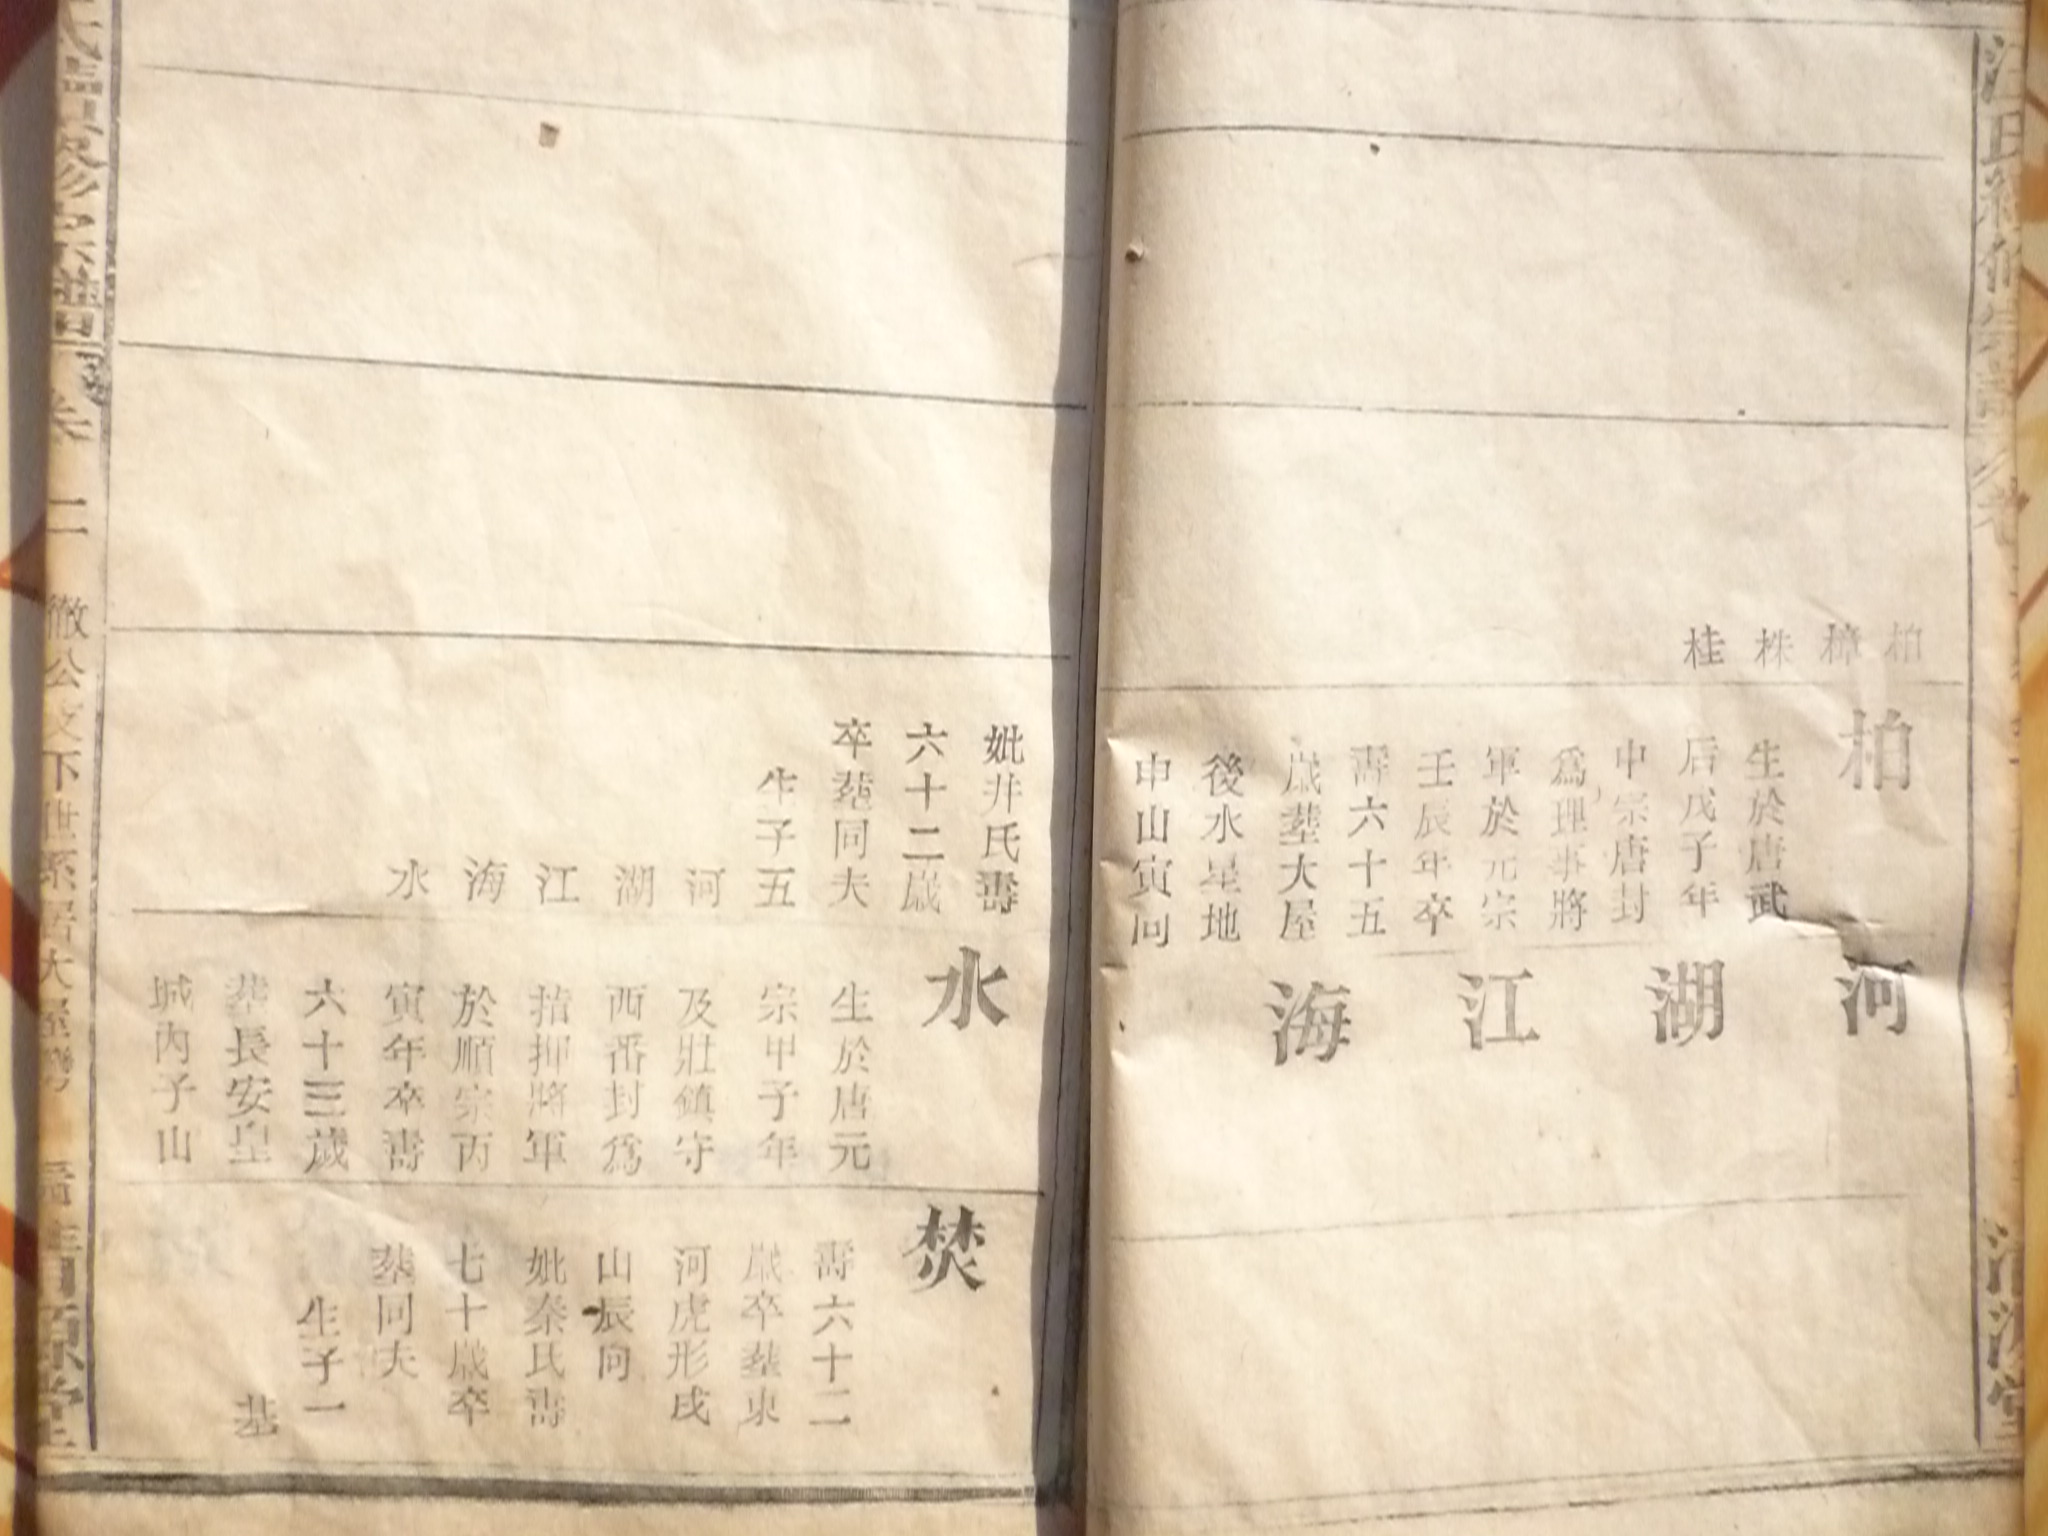 柏
樟
株
桂
柏
生於唐武
后戊子年
中宗唐封
爲理事將
軍於元宗
壬辰年卒
壽六十五
歲塟大屋
後水星地
申山寅向
河
湖
江
海
妣井氏壽
六十二歲
卒塟同夫
生子五
河
湖
江
海
水
水
生於唐元
宗甲子年
及壯鎮守
西番封爲
揞抑將軍
於順宗丙
寅年卒壽
六十三歲
塟長安皇
城內子山
焚
壽六十二
歲卒塟東
河虎形戌
山辰向
妣秦氏壽
七十歲卒
塟同夫
生子一
基
氏續修宗譜 卷二 徹公支下世系居大屋灣 清源堂